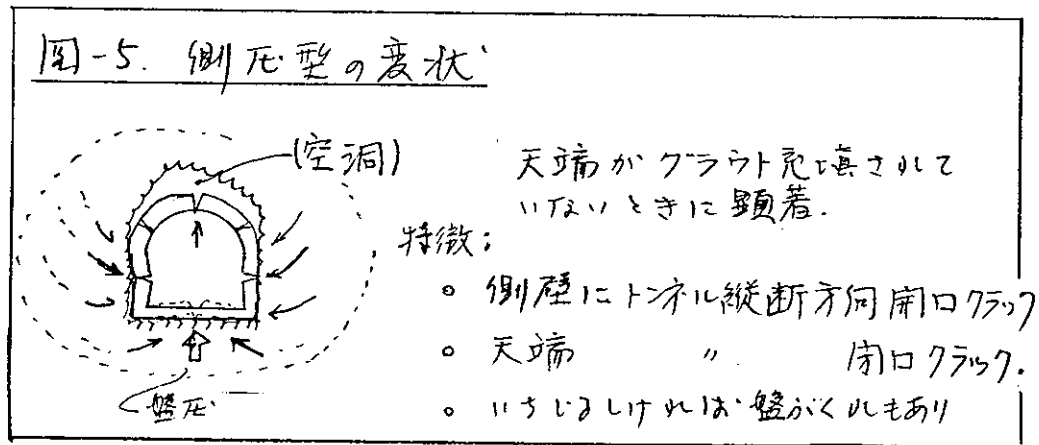 図-5. 側圧型の変状
(空洞)
天端がグラウト充填されて
いないときに顕著.
特徴;
。側壁にトンネル縦断方向開口クラック
。天端 〃 閉口クラック.
。いちじるしければ盤ぶくれもあり
盤圧